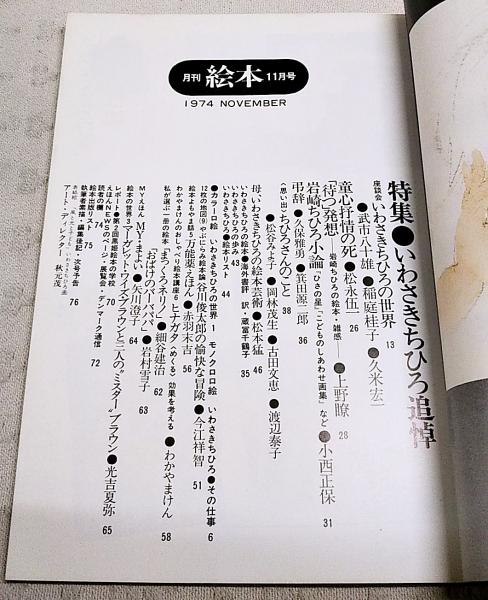 月刊 絵本 11月号
1974 NOVEMBER
特集●いわさきちひろ追悼
座談会 いわさきちひろの世界 13
●武市八十雄●稲庭桂子●久米宏一
童心抒情の死●松永伍一 26
「待つ」発想―岩崎ちひろの絵本・雑感―●上野瞭 28
岩崎ちひろ小論『ひさの星』『こどものしあわせ画集』など●小西正保 31
弔辞●久保雅勇●箕田源二郎 36
〈思い出〉ちひろさんのこと 38
●松谷みよ子●岡林茂生●古田文恵●渡辺泰子
母、いわさきちひろの絵本芸術●松本猛 46
いわさきちひろの絵本●海外書評 訳・蔵冨千鶴子 35
いわさきちひろの歩み 43
いわさきちひろ●絵本リスト 44
●カラー口絵 いわさきちひろの世界 1 モノクロ口絵 いわさきちひろ●その仕事 6
12枚の地図(9)やぶにらみ絵本論 谷川俊太郎の愉快な冒険●今江祥智 51
絵本よもやま話5 万能薬えほん●赤羽末吉 56
わかやまけんのおしゃべり絵本講座6 ヒナガタ(めくる)効果を考える●わかやまけん 58
私が選ぶ一冊の絵本『まつくろネリノ』●細谷建治 62
『おばけのバーバパパ』●岩村雪子 63
MYえほん MYてまよい●矢川澄子 64
絵本の世界3 マーガレット・ワイズ・ブラウンと二人の“ミスター”ブラウン●光吉夏弥 65
レポート●第2回黒姫絵本の学校 72
えほんNEWSのページ・展覧会・デンマーク通信
読者の欄 74
絵本出版リスト 75
執筆者素描・編集後記・次号予告 76